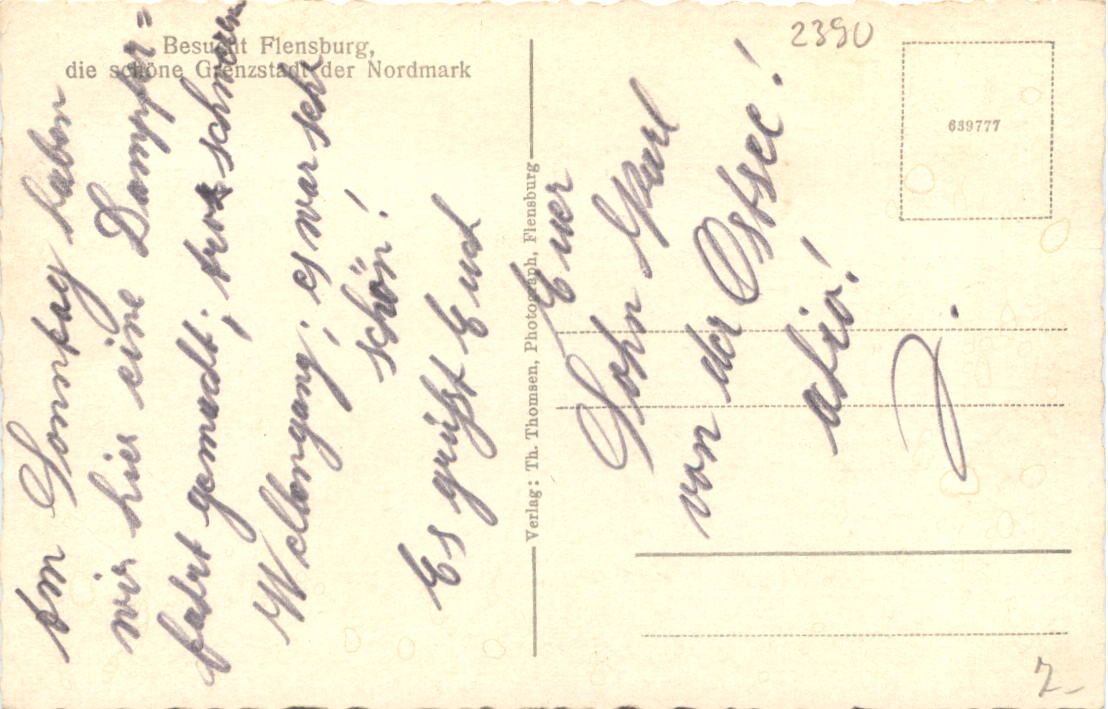 Besucht Flensburg,
die schöne Grenzstadt der Nordmark
am Sonntag haben
wir hier eine Dampfer=
fahrt gemacht, trotz schweren
Wellengang; es war sehr
schön!
Es grüßt Euch
Verlag: Th. Thomsen, Photograph, Flensburg
Euer
Sohn Karl
von der Ostsee!
2390
639777
7.-